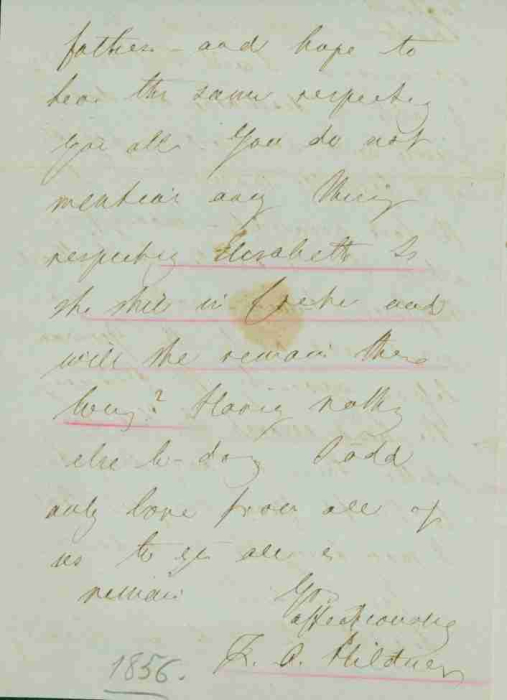 father - and hope to
hear the same respecting
you all. You do not
mention any thing
respecting Elisabeth Is
she still in Crete and
will she remain there
long? Having nothing
else to-day I add
only love from all of
us to you all &
remain
Yrs
affectionately
1856.